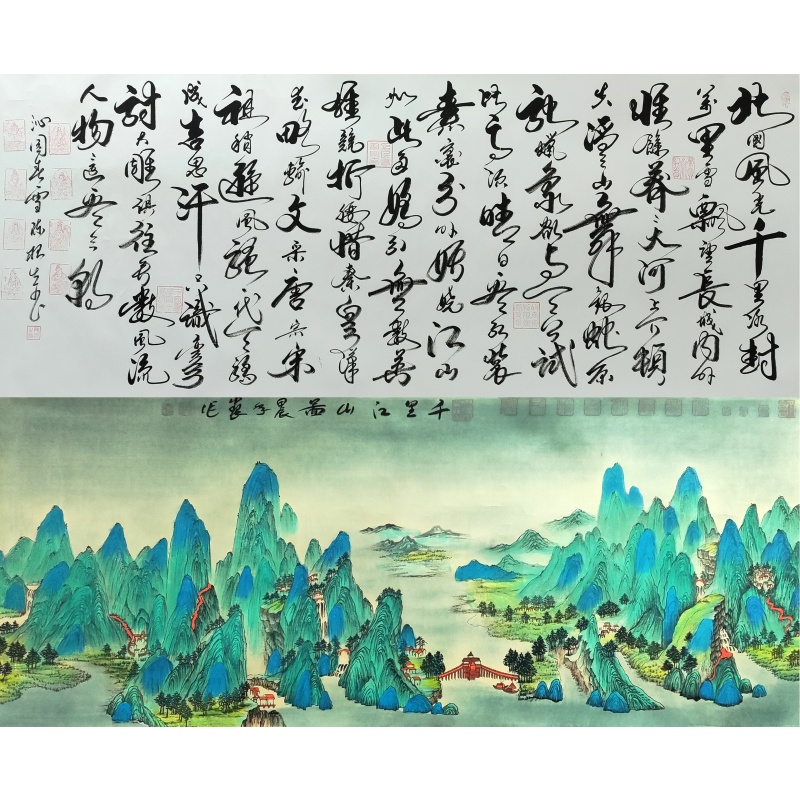 北國風光千里冰封
萬里雪飄望長城内外
惟餘莽々大河上下頓
失滔々山舞銀蛇原
馳蠟象欲与天公試
比高須晴日看紅裝
素裹分外妖嬈江山
如此多嬌引無數英
雄競折腰惜秦皇漢
武略輸文采唐宗宋
祖稍遜風騷一代天驕
成吉思汗只識彎弓
射大雕俱往矣數風流
人物還看今朝
沁園春雪
千里江山啚